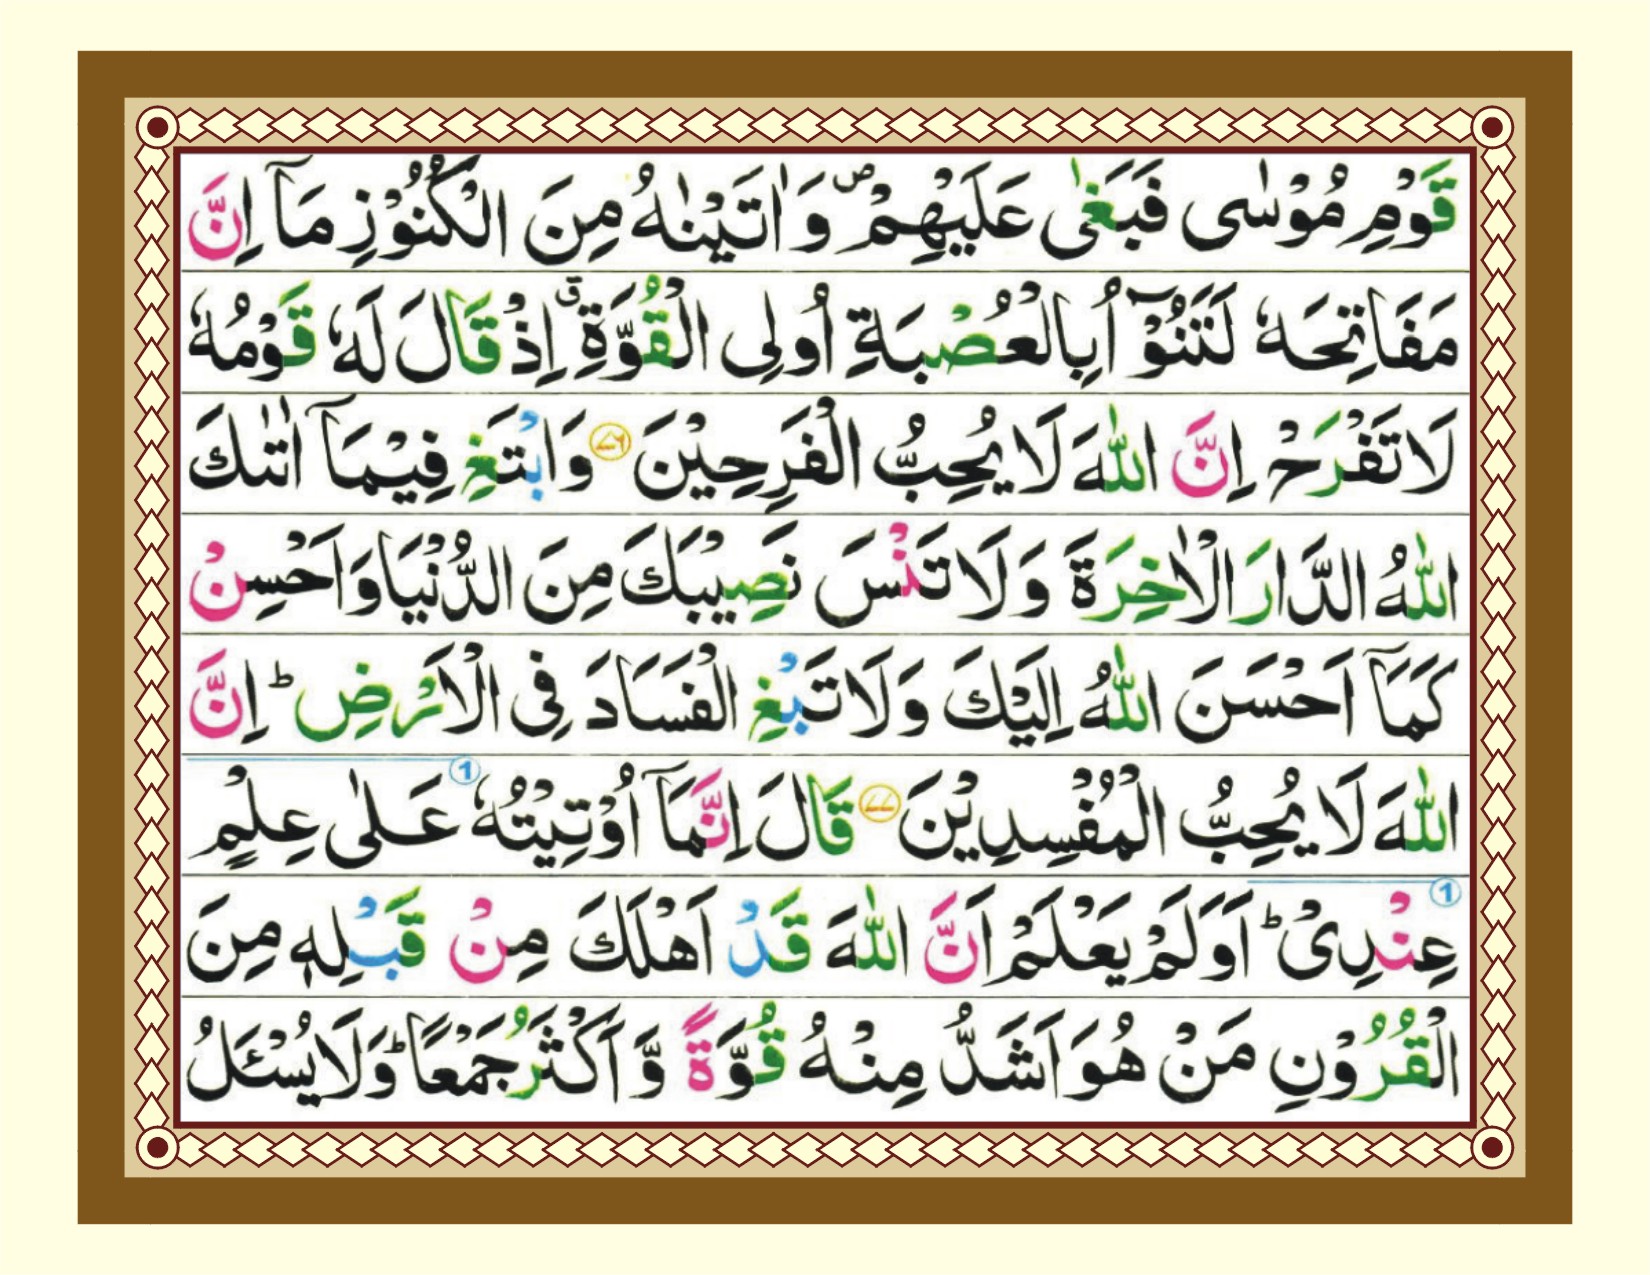 قَوْمِ مُوْسٰى فَبَغٰى عَلَيْهِمْ ۪ وَ اٰتَيْنٰهُ مِنَ الْكُنُوْزِ مَاۤ اِنَّ
مَفَاتِحَهٗ لَتَنُوْٓاُ بِالْعُصْبَةِ اُولِى الْقُوَّةِ ۗ اِذْ قَالَ لَهٗ قَوْمُهٗ
لَا تَفْرَحْ اِنَّ اللّٰهَ لَا يُحِبُّ الْفَرِحِيْنَ ﴿۷۶﴾ وَ ابْتَغِ فِيْمَاۤ اٰتٰىكَ
اللّٰهُ الدَّارَ الْاٰخِرَةَ وَ لَا تَنْسَ نَصِيْبَكَ مِنَ الدُّنْيَا وَ اَحْسِنْ
كَمَاۤ اَحْسَنَ اللّٰهُ اِلَيْكَ وَ لَا تَبْغِ الْفَسَادَ فِى الْاَرْضِ ؕ اِنَّ
اللّٰهَ لَا يُحِبُّ الْمُفْسِدِيْنَ ﴿۷۷﴾ قَالَ اِنَّمَاۤ اُوْتِيْتُهٗ 1 عَلٰى عِلْمٍ
1 عِنْدِىْ ؕ اَوَ لَمْ يَعْلَمْ اَنَّ اللّٰهَ قَدْ اَهْلَكَ مِنْ قَبْلِهٖ مِنَ
الْقُرُوْنِ مَنْ هُوَ اَشَدُّ مِنْهُ قُوَّةً وَّ اَكْثَرُ جَمْعًا ؕ وَ لَا يُسْـَٔلُ